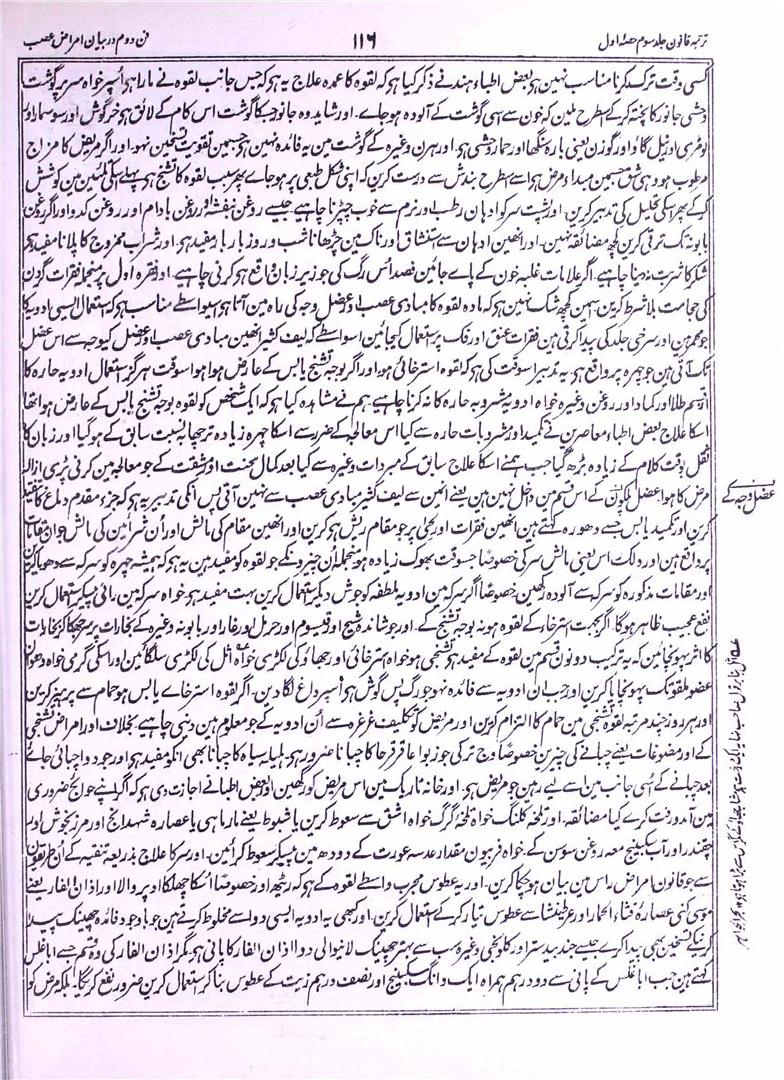 ترجمہ قانون جلد سوم حصۂ اول ۱۱۶ فن دوم در بیان امراض عصب
کسی وقت ترک کرنا مناسب نہین ہو بعض اطباء ہند نے ذکر کیا ہو کہ لقوہ کا عمدہ علاج یہ ہو کہ جس جانب لقوہ نے مارا ہو اُسپر خواہ سر پر گوشت
وحشی جانور کا پختہ کر کے اسطرح ملین کہ خون سے اسی گوشت کے آلودہ ہو جاے۔ اور شاید وہ جانور جسکا گوشت اس کام کے لائق ہو خرگوش اور سوسمار اور
لومڑی اور نیل گاؤ اور گوزن یعنی بارہ سنگھا اور حمار وحشی ہو۔ اور ہرن وغیرہ کے گوشت مین یہ فائدہ نہین ہو جسمین تقویت تسخین نہو۔ اور اگر مریض کا مزاج
مرطوب ہو وہی شق جسمین مبداء مرض ہو اسے اسطرح بندش سے درست کرین کہ اپنی شکل طبعی پر ہو جاے پھر سبب لقوہ کا تشنج ہو پہلے اسکی تلئین مین کوشش
کر کے پھر اسکی تحلیل کی تدبیر کرین۔ اور پشت سر کو ادہان رطب اور نرم سے خوب چپڑنا چاہیے جیسے روغن بنفشہ اور روغن بادام اور روغن کدو اور اگر روغن
بابونہ تک ترقی کرین کچھ مضائقہ نہین۔ اور انھین ادہان سے ستنشاق اور ناک مین چڑھانا شب و روز بار بار مفید ہو۔ اور شراب ممزوج کا پلانا مفید ہو
شکر کا شربت نہ دینا چاہیے۔ اگر علامات غلبہ خون کے پاے جائین فصد اُس رگ کی جو زیر زبان واقع ہو کرنی چاہیے۔ اور فقرہ اول پر منجملہ فقرات گردن
کی حجامت بلا شرط کرین اسمین کچھ شک نہین ہو کہ مادہ لقوہ کا مبادی عصب اور عضل وجہ کی راہ مین آتا ہو اسیواسطے مناسب ہو کہ ستعمال ایسی ادویہ کا
جو محمر ہین اور سرخی جلد کی پیدا کرتی ہین فقرات عنق اور فک پر استعمال کیجائین اسواسطے کہ لیف کثیر انھین مبادی عصب اور عضل کیوجہ سے اس عضل
تک آتی ہین جو چہرہ پر واقع ہو۔ یہ تدبیر اسوقت کی ہو کہ لقوہ استرخائی ہو اور اگر بوجہ تشنج یابس کے عارض ہوا ہو اسوقت ہرگز استعمال ادویہ حارہ کا
از قسم طلا اور کماد اور روغن وغیرہ خواہ ادویہ مشروبہ حارہ کا نہ کرنا چاہیے۔ ہم نے مشاہدہ کیا ہو کہ ایک شخص کو لقوہ بوجہ تشنج یابس کے عارض ہوا تھا
اسکا علاج بعض اطباء معاصرین نے تکمید اور مشروبات حارہ سے کیا اس معالجہ کے ضرر سے اسکا چہرہ زیادہ ترچھا بہ نسبت سابق کے ہو گیا اور زبان کا
ثقل بوقت کلام کے زیادہ بڑھ گیا جب ہمنے اسکا علاج سابق کے مبردات وغیرہ سے کیا بعد کمال محنت اور مشقت کے جو معالجہ مین کرنی پڑی ازالہ
مرض کا ہوا عضل کے اس قسم مین داخل نہین ہین یعنے انین سے لیف کثیر مبادی عصب سے نہین آتی پس انکی تدبیر یہ ہو کہ جزء مقدم دماغ کا تنقیہ
کرین اور تکمید یابس جسے کہتے ہین انھین فقرات اور لحی پر جو مقام ریش ہو کرین اور انھین مقام کی مالش اور اُن شرائین کی مالش جو ان مقامات
پر واقع ہین اور دلک راس یعنی مالش سر کی خصوصاً جسوقت بھوک زیادہ ہو منجملہ اُن چیزونکے جو لقوہ کو مفید ہین یہ ہو کہ ہمیشہ چہرہ کو سرکہ سے دھویا کرین
اور مقامات مذکورہ کو سرکہ سے آلودہ رکھین خصوصاً اگر سرکہ مین ادویہ ملطفہ کو جوش دیکر استعمال کرین بہت مفید ہو خواہ سرکہ مین رائی پیسکر استعمال کرین
نفع عجیب ظاہر ہوگا۔ اگر بجہت استرخاء کے لقوہ ہو نہ بوجہ تشنج کے۔ اور جوشاندہ شیح اور قیسوم اور حرمل اور غار اور بابونہ وغیرہ کے بخارات پر سر جھکا کر بخارات
کا اثر پہونچائین کہ یہ ترکیب دونون قسم مین لقوہ کے مفید ہو تشنجی ہو خواہ استرخائی اور جھاؤ کی لکڑی خواہ اثل کی لکڑی سلگائین اور اسکی گرمی خواہ دھوان
عضو ملقوہ تک پہونچایا کرین اور جب ان ادویہ سے فائدہ نہو جو رگ پس گوش ہو اُسپر داغ لگا دین۔ اگر لقوہ استرخاے یابس ہو حمام سے پرہیز کرین
اور ہر روز چند مرتبہ لقوہ تشنجی مین حمام کا التزام کرین اور مریض کو تکلیف غرغرہ سے اُن ادویہ کے جو معلوم ہین دینی چاہیے بخلاف اور امراض تشنجی
کے اور مضوغات یعنے چبانے کی چیزین خصوصاً وج ترکی جوز بوا عاقر قرحا کا چبانا ضرور ہو۔ ہلیلہ سیاہ کا چبانا بھی انکو مفید ہو۔ اور جو دوا چبائی جاے
بعد چبانے کے اُسی جانب مین اسے لیے رہین جو مریض ہو۔ اور خانہ تاریک مین اس مریض کو رکھین اور بعض اطبا نے اجازت دی ہو کہ اگر اپنے حوائج ضروری
مین آمد و رفت کرے کیا مضائقہ۔ اور تلخہ کلنگ خواہ تلخۂ گرگ خواہ اشق سے سعوط کرین یا شبوط یعنے مار ماہی یا عصارہ شہدانج اور مرزنجوش اور
چقندر اور آب سکبینج معہ روغن سوسن کے۔ خواہ فربیون مقدار عدسہ عورت کے دودھ مین پیسکر سعوط کرائین۔ اور سر کا علاج بذریعہ تنقیہ کے اُن طریقون
سے جو قانون امراض راس مین بیان ہو چکا کرین۔ اور یہ عطوس مجرب واسطے لقوہ کے ہو کہ ریٹھا اور خصوصاً اُسکا چھلکا اوپر والا اور اذان الفار یعنے
موسی کنی عصارۂ قثاء الحمار اور عرطنیثا سے عطوس تیار کر کے استعمال کرین۔ اور کبھی یہ ادویہ ایسی دوا سے مخلوط کرتے ہین جو باوجود فائدہ چھینک پیدا
کرنیکے تسخین بھی پیدا کرے جیسے جند بیدستر اور کلونجی وغیرہ سب سے بہتر چھینک لانیوالی دوا اذان الفار کا پانی ہو مگر اذان الفار کی وہ قسم جسے اباغلس
کہتے ہین جب اباغلس کے پانی سے دو درہم ہمراہ ایک دانگ سکبینج اور نصف درہم زیت کے عطوس بنا کر استعمال کرین ضرور نفع کریگا۔ بلکہ مرض کو
عضل وجہ کے